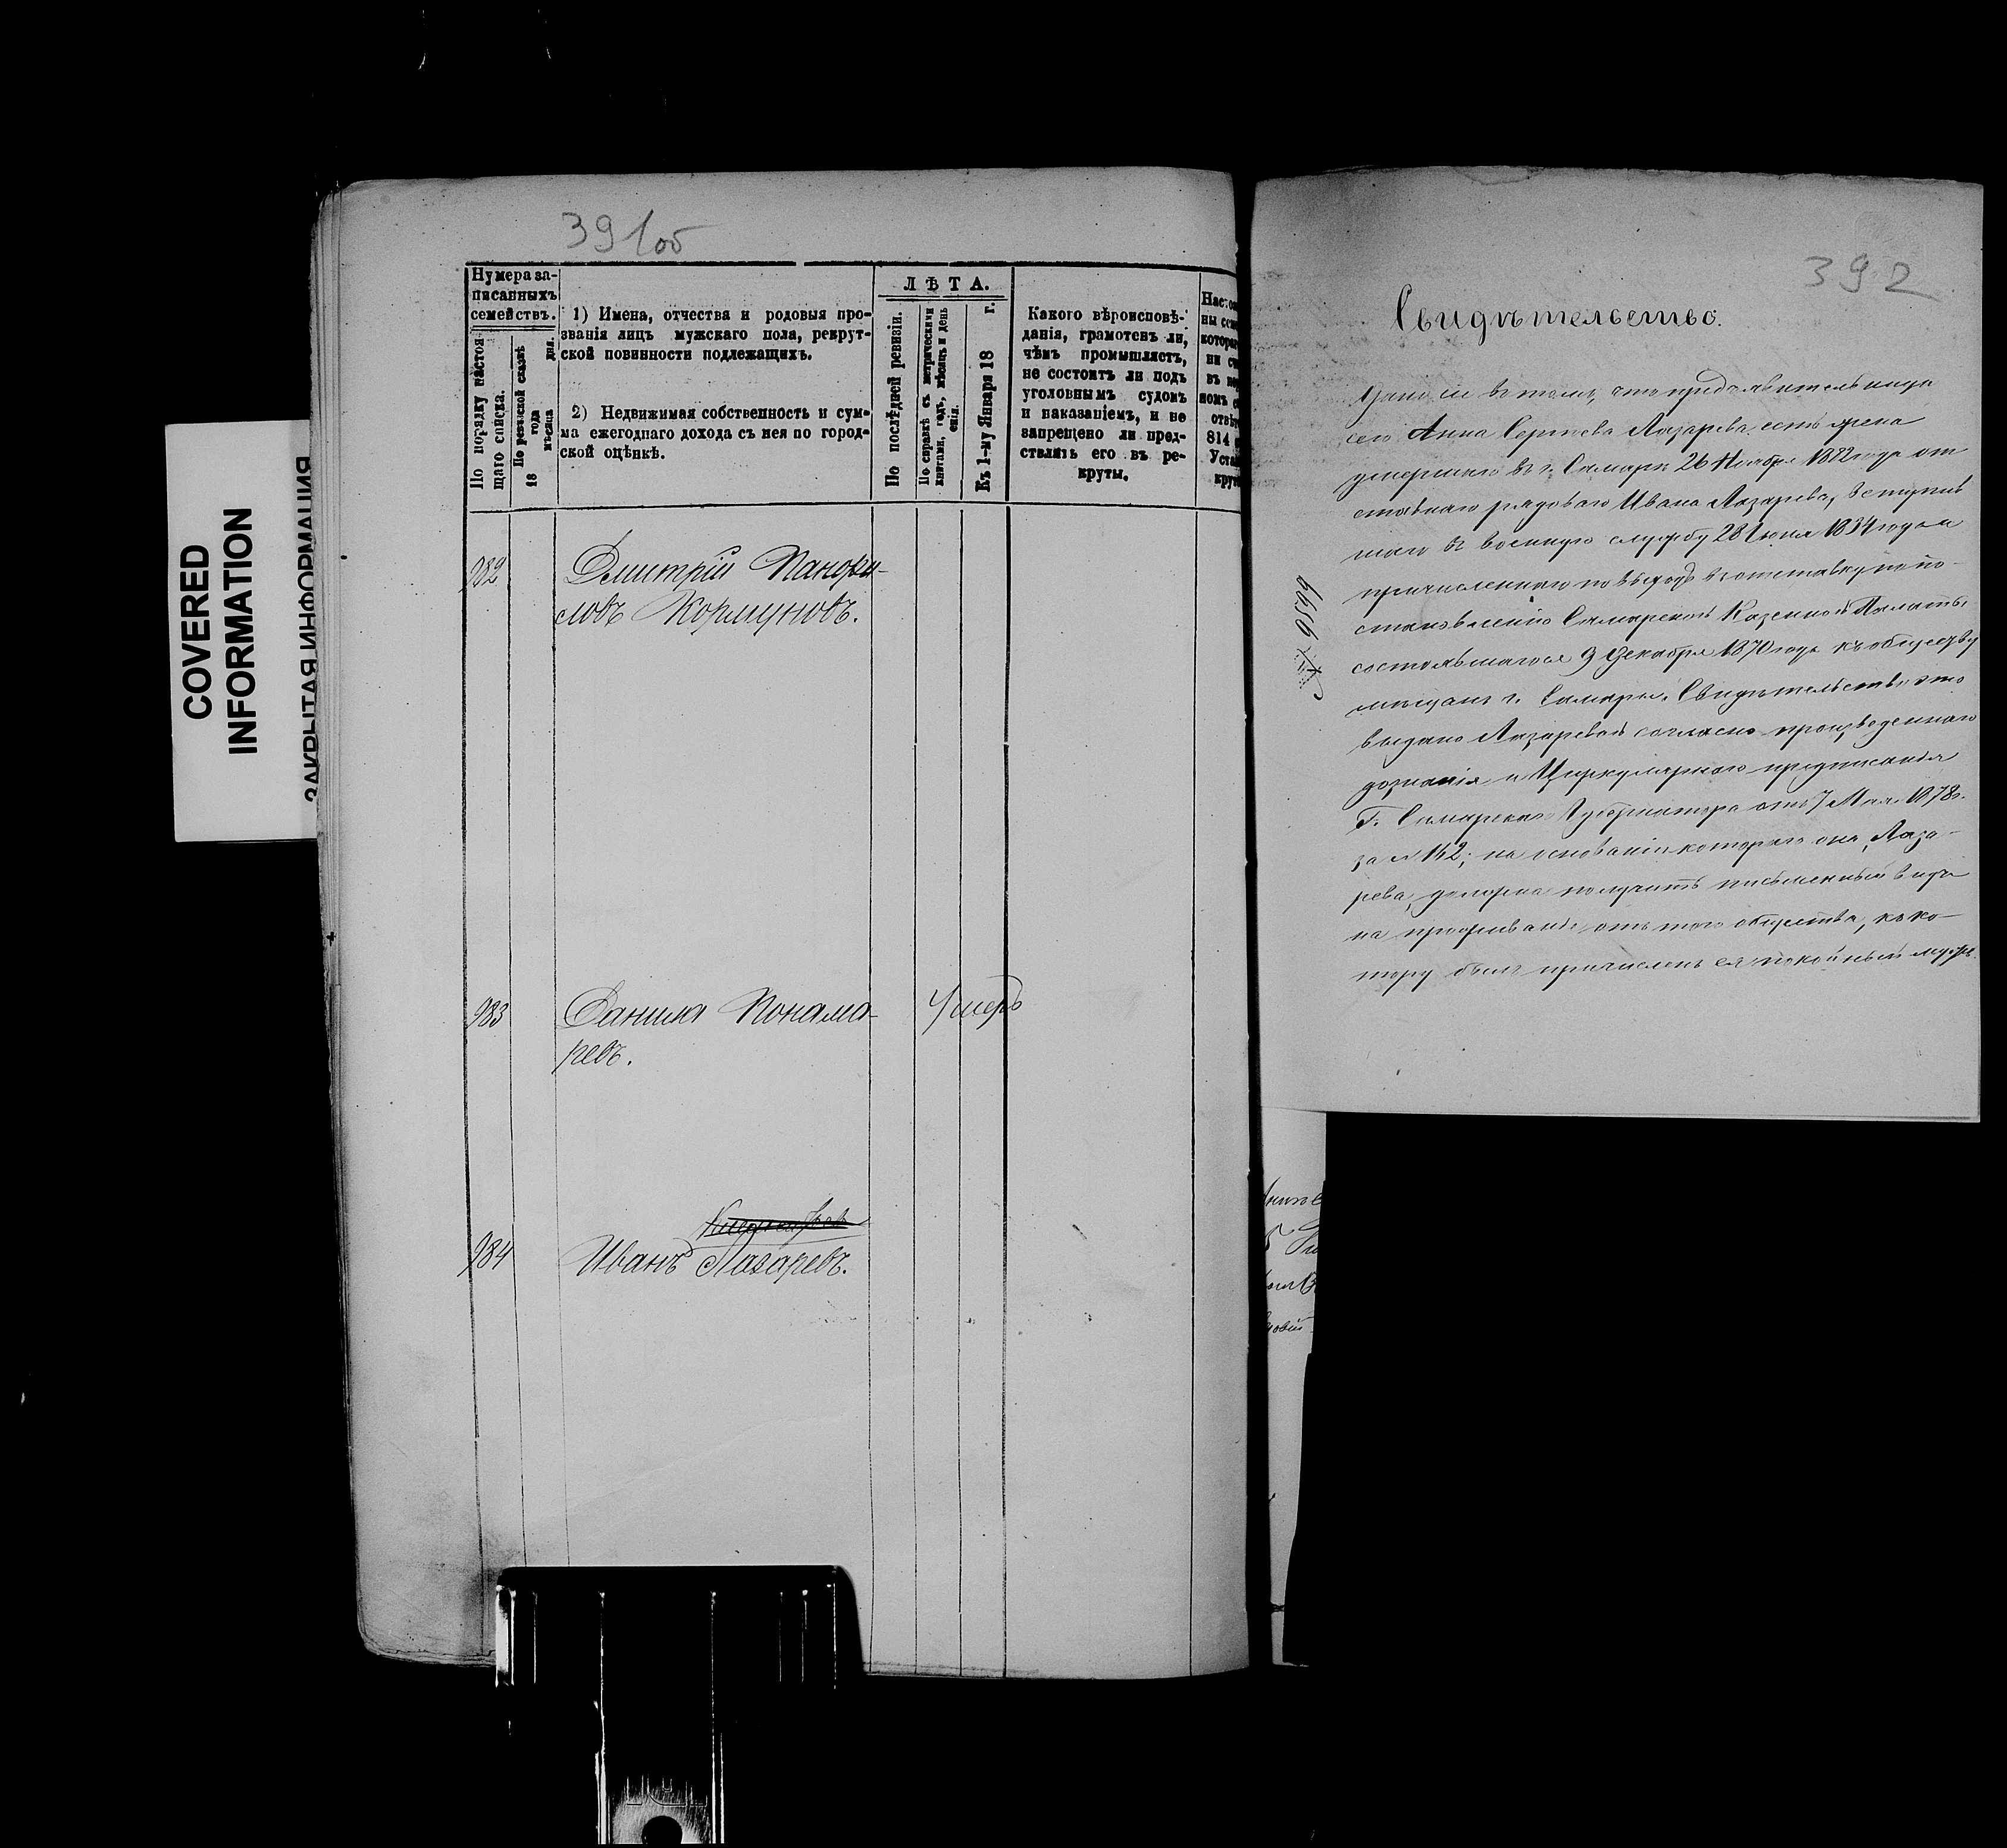 COVERED
INFORMATION
ЗАКРЫТАЯ ИНФОРМАЦИЯ
391об
Нумера за-
писанныхъ
семействъ.
По порядку настоя-
щаго списка.
По ревизской сказкѣ
18 года мѣсяца дня.
1) Имена, отчества и родовыя про-
званія лицъ мужскаго пола, рекрут-
ской повинности подлежащихъ.
2) Недвижимая собственность и сум-
ма ежегоднаго дохода съ нея по город-
ской оцѣнкѣ.
ЛѢТА.
По послѣдней ревизіи.
По справкѣ съ метрическими
книгами, годъ, мѣсяцъ и день
Къ 1-му Января 18 г.
Какого вѣроисповѣ-
данія, грамотенъ ли,
чѣмъ промышляетъ,
не состоитъ ли подъ
уголовнымъ судомъ
и наказаніемъ, и не
запрещено ли пред-
ставлять его въ ре-
круты.
814
982
Дмитрій
Кормуновъ.
983
Данила Понама-
ревъ.
Умеръ
984
Иванъ Лазаревъ.
392
Свидѣтельство.
Дано сіе въ томъ, что предъявительница
сего Анна Сергѣева Лазарева есть жена
умершаго въ г. Самарѣ 26 Ноября 1882 года от
ставнаго рядоваго Ивана Лазарева, вступив
шаго въ военную службу 28 Іюня 1834 года и
причисленнаго по выходѣ въ отставку по по-
становленію Самарской Казенной Палаты,
состоявшагося 9 Декабря 1870 года къ обществу
мѣщанъ г. Самары. Свидѣтельство это
выдано Лазаревой согласно произведеннаго
дознанія и Циркулярнаго предписанія
Г. Самарскаго Губернатора отъ 7 Мая 1878 г.
за № 142; на основаніи котораго она, Лаза-
рева, должна получить письменный видъ
на проживаніе отъ того общества, къ ко-
тору былъ причисленъ ея покойный мужъ.